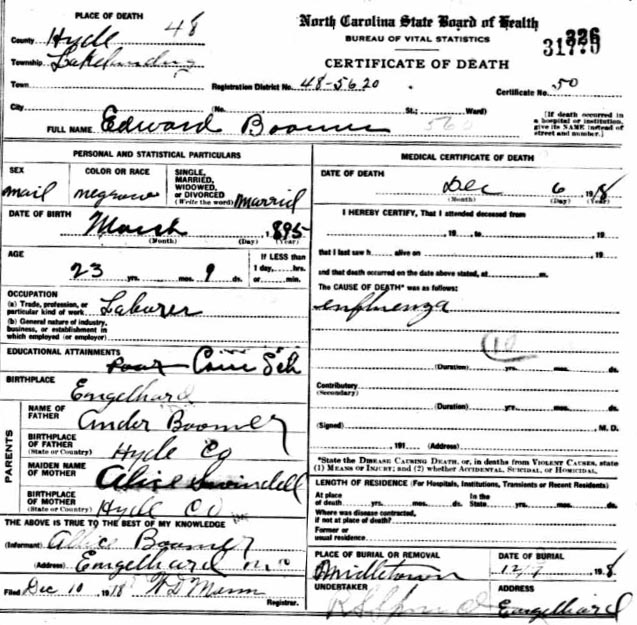 PLACE OF DEATH 48
County Hyde
Township
Town
City
North Carolina State Board of Health
BUREAU OF VITAL STATISTICS
CERTIFICATE OF DEATH
Registration District No. 48-5620 Certificate No. 50
(No. St.; Ward)
(If death occurred in a hospital or institution, give its NAME instead of street and number.)
FULL NAME Edward Boomer
PERSONAL AND STATISTICAL PARTICULARS
SEX mail
COLOR OR RACE
SINGLE, MARRIED, WIDOWED, or DIVORCED (Write the word) Married
DATE OF BIRTH March 1895
(Month) (Day) (Year)
AGE 23 yrs. mos. 9 ds.
If LESS than 1 day, hrs. or min.
OCCUPATION
(a) Trade, profession, or particular kind of work Laburer
(b) General nature of industry, business, or establishment in which employed (or employer)
EDUCATIONAL ATTAINMENTS
BIRTHPLACE Engelhard
PARENTS
NAME OF FATHER Ander Boomer
BIRTHPLACE OF FATHER (State or Country) Hyde Co
MAIDEN NAME OF MOTHER Alice Swindell
BIRTHPLACE OF MOTHER (State or Country) Hyde Co
THE ABOVE IS TRUE TO THE BEST OF MY KNOWLEDGE
(Informant) Alice Boomer
(Address) Engelhard nc
Filed Dec 10 1918 W D Mann
Registrar.
MEDICAL CERTIFICATE OF DEATH
DATE OF DEATH
Dec 6 1918
(Month) (Day) (Year)
I HEREBY CERTIFY, That I attended deceased from
, 19 , to , 19
that I last saw h alive on , 19
and that death occurred on the date above stated, at m.
The CAUSE OF DEATH* was as follows:
enfluenza
(Duration) yrs. mos. ds.
Contributory
(Secondary)
(Duration) yrs. mos. ds.
(Signed) M. D.
, 191 (Address)
*State the DISEASE CAUSING DEATH, or, in deaths from VIOLENT CAUSES, state (1) MEANS OF INJURY; and (2) whether ACCIDENTAL, SUICIDAL, or HOMICIDAL.
LENGTH OF RESIDENCE (For Hospitals, Institutions, Transients or Recent Residents)
At place of death yrs. mos. ds. In the State yrs. mos. ds.
Where was disease contracted, if not at place of death?
Former or usual residence
PLACE OF BURIAL OR REMOVAL
Midletown
DATE OF BURIAL
12/7 1918
UNDERTAKER
ADDRESS
Engelhard